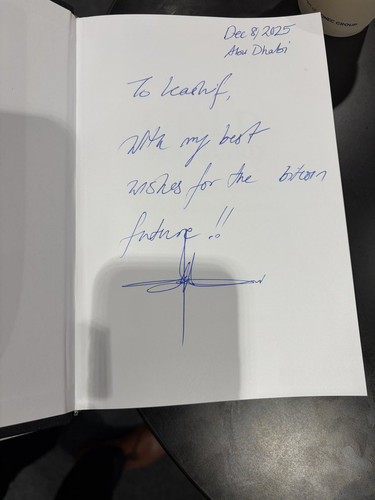 Dec 8, 2025
Abu Dhabi
To Kashif,
with my best
wishes for the bitcoin
future !!
GROUP